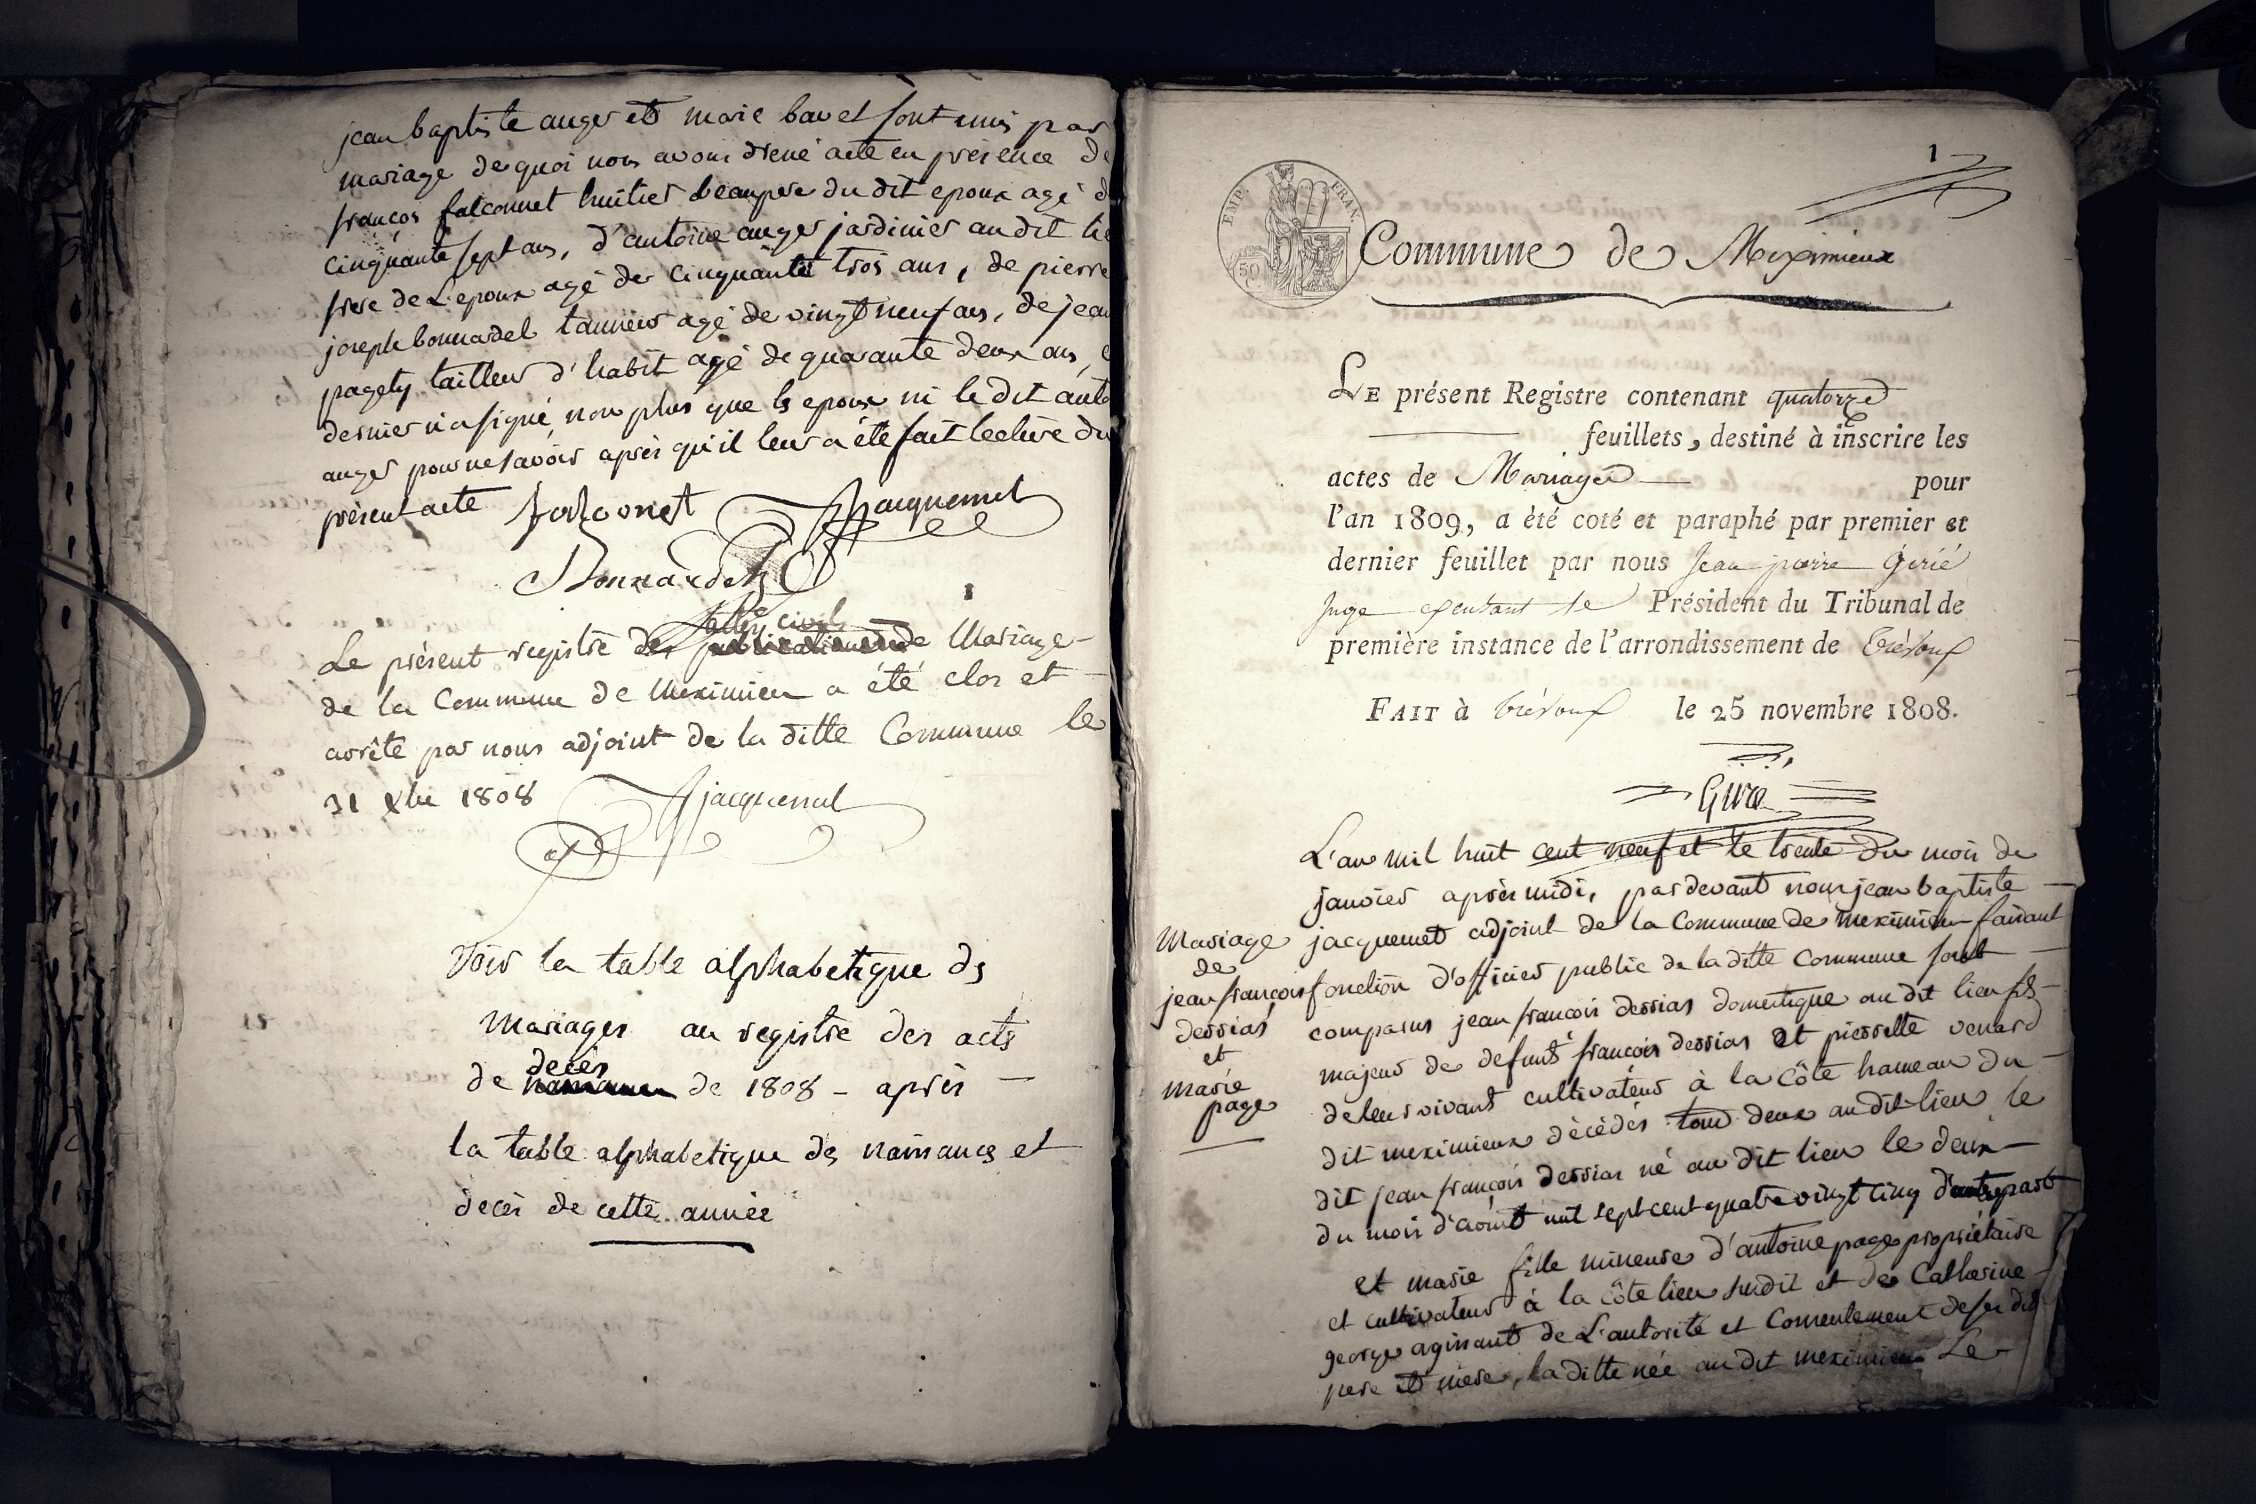 jean baptiste auger et marie bavet sont unis par
mariage de quoi nous avons dréné acte en présence de
françois falconnet huilier beaupere du dit epoux agé d
cinquante sept ans, d'antoine auger jardinier au dit lie
frere de L'epoux agé de cinquante trois ans, de pierre
joseph bonnardel tanneur agé de vingt neuf ans, de jean
pagety tailleur d'habit agé de quarante deux ans, c
dernier n'a signé non plus que ls epoux ni le dit anto
auger pour ne savoir après qu'il leur a été fait lecture du
présent acte falconet Jacquemet
Bonnardel
actes civils
Le présent registre de de Mariage
de la Commune de meximieu a été clos et
arrêté par nous adjoint de la ditte Commune le
31 Xbre 1808 jacquemet
Voir la table alphabetique ds
mariages au registre des acts
decès
de de 1808 - après
la table alphabetique des naissances et
decès de cette année
1
EMP. FRAN.
50 C.
Commune de Meximieux
LE présent Registre contenant quatorze
feuillets, destiné à inscrire les
actes de Mariages pour
l'an 1809, a été coté et paraphé par premier et
dernier feuillet par nous Jean pierre Girié
Juge exerçant le Président du Tribunal de
première instance de l'arrondissement de Trévoux
FAIT à trévoux le 25 novembre 1808.
Girié
L'an mil huit cent neuf et le trente du mois de
janvier après midi, pardevant nous jean baptiste
jacquemet adjoint de la Commune de meximieu faisant
fonction d'officier public de la ditte Commune sont
comparus jean françois dessias domestique au dit lieu fils
majeur de defunts françois dessias et pierrette venard
de leur vivant cultivateurs à la côte hameau du
dit meximieux décédés tous deux au dit lieu, le
dit jean françois dessias né au dit lieu le deux
du mois d'août mil sept cent quatre vingt cinq d'autre part
et marie fille mineure d'antoine page propriétaire
et cultivateur à la côte lieu susdit et de Catherine
george agissant de L'autorité et Consentement de ses dits
pere et mere, la ditte née au dit meximieu Le
Mariage
de
jean françois
dessias
et
marie
page